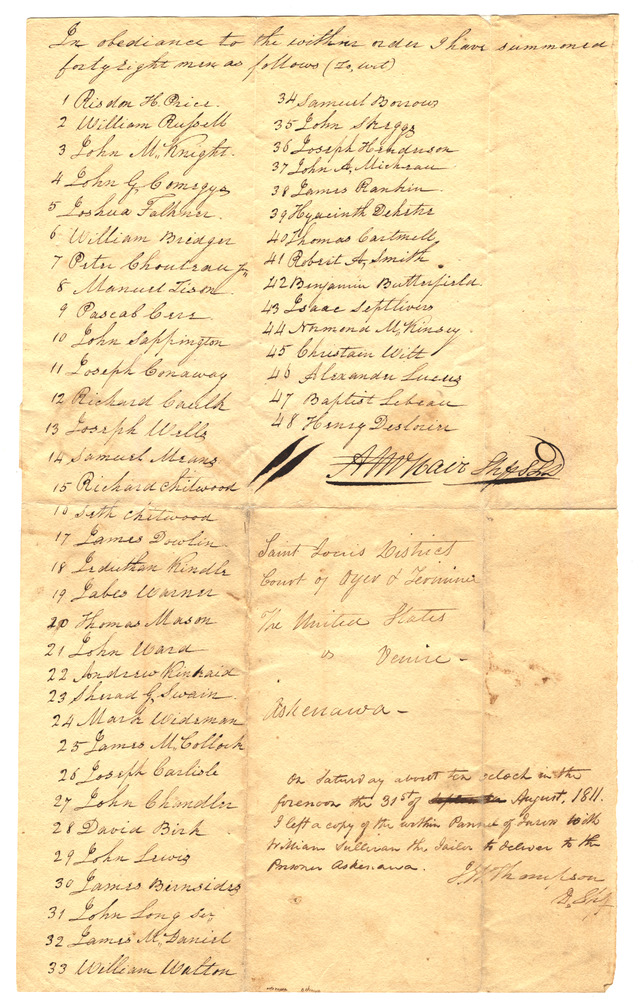 In obediance to the within order I have summoned
forty eight men as follows (To, wit)
1 Risdon H. Price.
2 William Russell
3 John McKnight.
4 John G. Comegys
5 Joshua Falkner.
6 William Bridger
7 Peter Chouteau Jr
8 Manuel Lison
9 Pascal Cerr
10 John Sappington
11 Joseph Conaway
12 Richard Caulk
13 Joseph Wells
14 Samuel Means
15 Richard Chitwood
16 Seth Chitwood
17 James Dowlin
18 Jeduthan Kindle
19 Jabes Warner
20 Thomas Mason
21 John Ward
22 Andrew Kinkaid
23 Sherad G. Swain
24 Mark Wideman
25 James McCollock
26 Joseph Carlisle
27 John Chandler
28 David Birk
29 John Lewis
30 James Bernsides
31 John Long Ser
32 James McDaniel
33 William Walton
34 Samuel Borrows
35 John Skeggs
36 Joseph Henderson
37 John A. Micheau
38 James Rankin
39 Hyacinth Dehetre
40 Thomas Cartmell
41 Robert A. Smith
42 Benjamin Butterfield.
43 Isaac Septlivers
44 Normond McKinsey
45 Christain Witt
46 Alexander Lucus
47 Baptist Lebeau
48 Henry Deslorier
A McNair Shff
Saint Louis District
Court of Oyer & Terminer
The United States
vs Venire -
Askenawa -
On Saturday about ten oclock in the
forenoon the 31st of August, 1811.
I left a copy of the within Pannel of Jurors with
William Sullivan the Jailor to deliver to the
Prisoner Askenawa.
J W Thompson
D. Shff